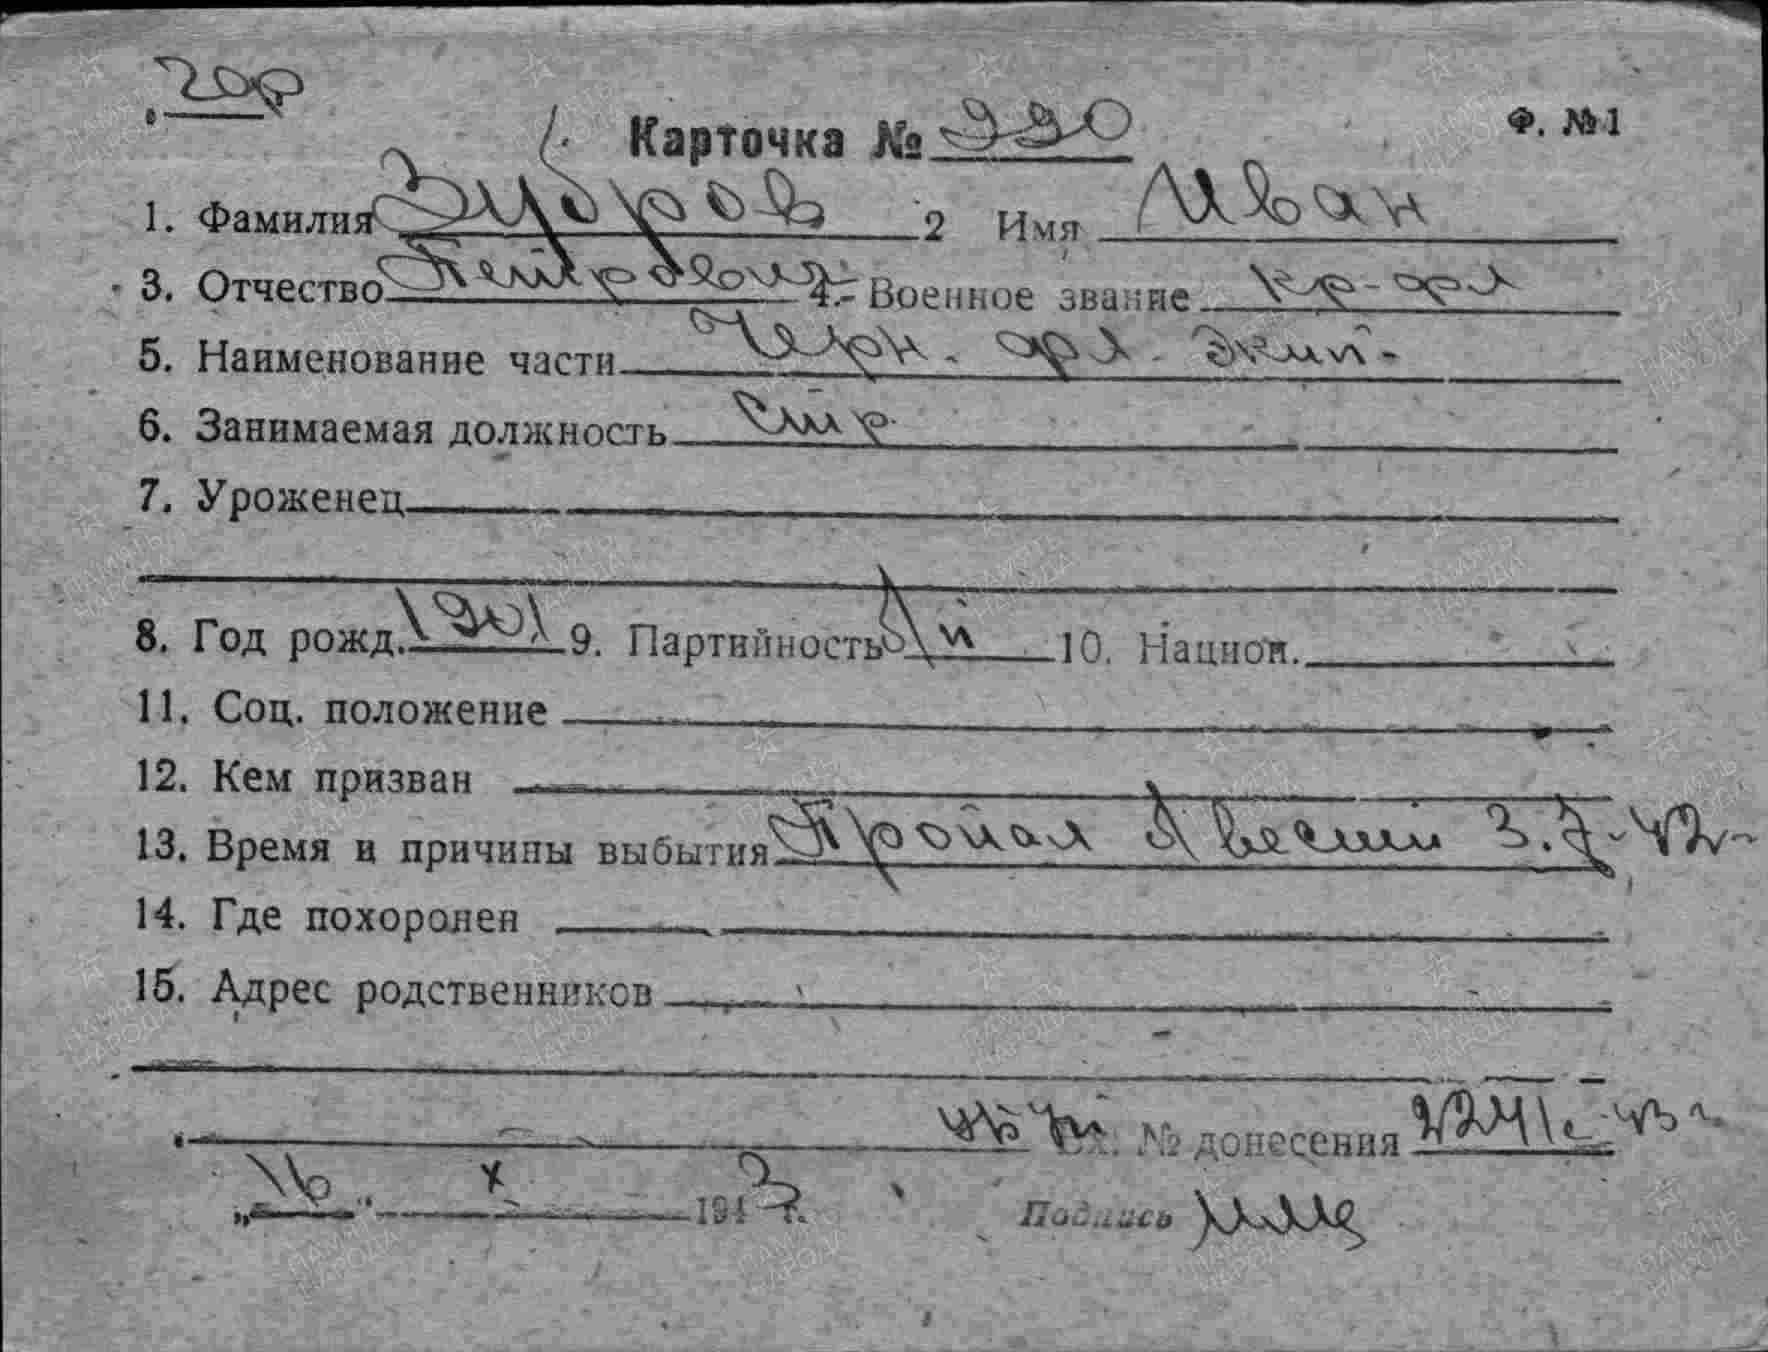 Карточка № 990
Ф. №1
1. Фамилия Зубров 2 Имя Иван
3. Отчество Петрович 4. Военное звание кр-фл
5. Наименование части Черн. фл. экип-
6. Занимаемая должность стр.
7. Уроженец
8. Год рожд. 1901 9. Партийность б/п 10. Национ.
11. Соц. положение
12. Кем призван
13. Время и причины выбытия Пропал б/вести 3.7-42-
14. Где похоронен
15. Адрес родственников
Вх. № донесения 2241с-43 г
„16“ X 1943 г.
Подпись